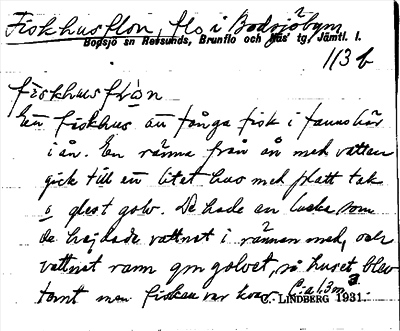 Fiskhusflon, flo i Bodsjöbyn
Bodsjö sn Revsunds, Brunflo och Näs' tg Jämtl. l.
113 b
fiskhusflon
Ett fiskhus att fånga fisk i fanns här
i ån. En ränna från ån med vatten
gick till ett litet hus med platt tak
o glest golv. De hade en lucka som
de hejdade vattnet i rännan med, och
vattnet rann gm golvet, så huset blev
tomt men fisken var kvar. C:a 13 m
C. LINDBERG 1931.